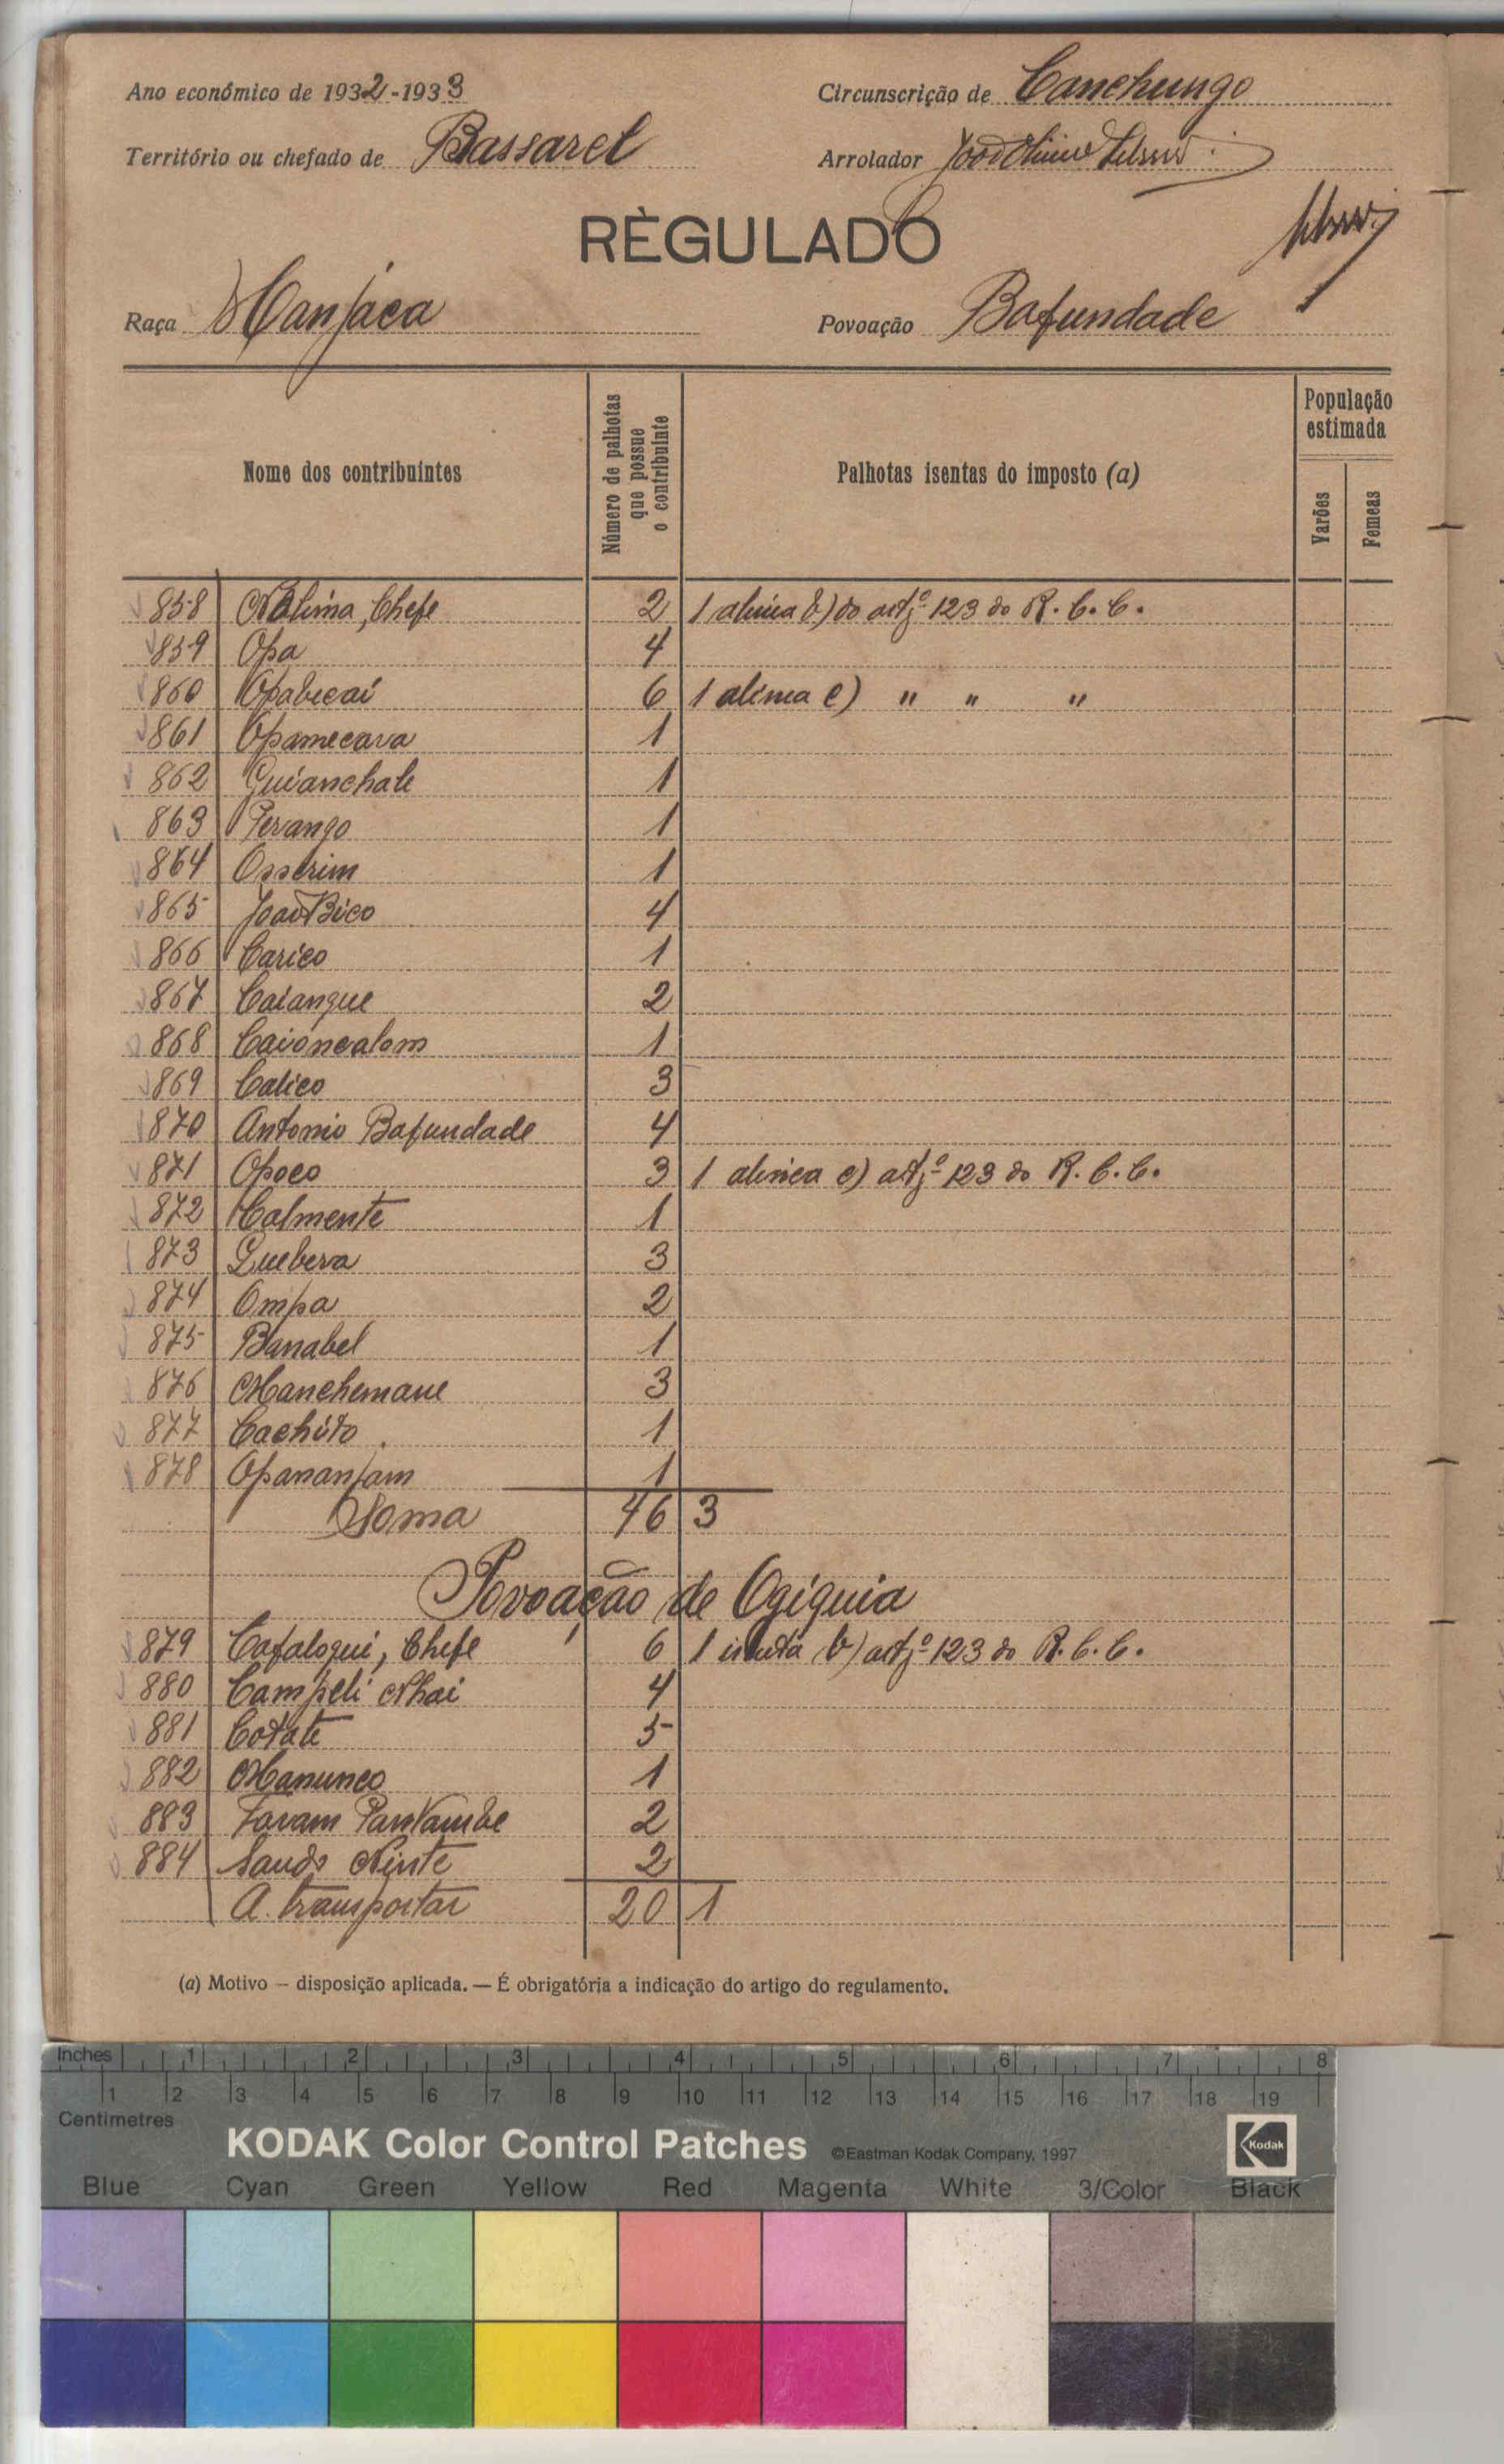 Ano económico de 1932-1933
Circunscrição de Canchungo
Território ou chefado de Bassarel
Arrolador
RÈGULADO
Raça Manjaca
Povoação Bafundade
Nome dos contribuintes
Número de palhotas que possue o contribuinte
Palhotas isentas do imposto (a)
População estimada
Varões
Femeas
858 Chefe 2 1 alinea b) do artº 123 do R. C. C.
859 Opa 4
860 Opabicai 6 1 alinea c) " " "
861 Opamecava 1
862 Guianchale 1
863 Perango 1
864 Osserim 1
865 João Bico 4
866 Carico 1
867 Caianque 2
868 Caioncalom 1
869 Calico 3
870 Antonio Bafundade 4
871 Opoco 3 1 alinea c) artº 123 do R. C. C.
872 Calmente 1
873 Quebera 3
874 Ompa 2
875 Banabel 1
876 Manchemane 3
877 Cachito 1
878 Opananjam 1
Soma 46 3
Povoação de Ogiquia
879 Cafaloqui, Chefe 6 1 isenta b) artº 123 do R. C. C.
880 Campeli Nhai 4
881 Cotate 5
882 Manunco 1
883 Favam Pantambe 2
884 Sando Ninte 2
A transportar 20 1
(a) Motivo — disposição aplicada. — É obrigatória a indicação do artigo do regulamento.
Inches 1 2 3 4 5 6 7 8
1 2 3 4 5 6 7 8 9 10 11 12 13 14 15 16 17 18 19
Centimetres
KODAK Color Control Patches ©Eastman Kodak Company, 1997 Kodak
Blue Cyan Green Yellow Red Magenta White 3/Color Black